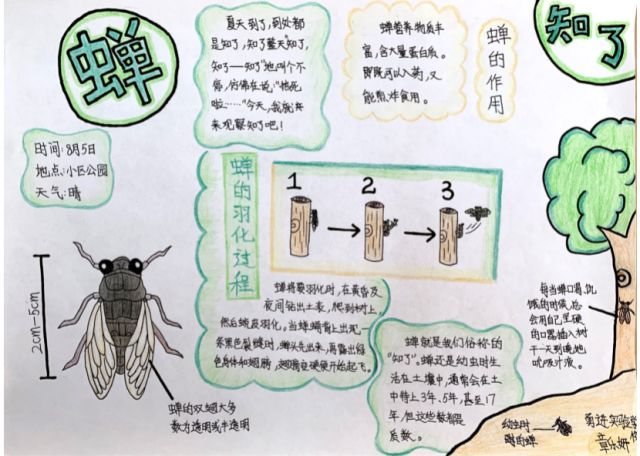 蝉
知了
夏天到了,到处都
是知了,知了整天"知了,
知了——知了"地叫个不
停,仿佛在说:"热死
啦……"今天,我就来
来观察知了吧!
蝉营养物质丰
富,含大量蛋白质。
即既可以入药,又
能煎、炸食用。
蝉的作用
时间:8月5日
地点:小区公园
天气:晴
蝉的羽化过程
1
2
3
蝉将要羽化时,在黄昏及
夜间钻出土表,爬到树上,
然后蜕皮羽化。当蝉蛹背上出现一
条黑色裂缝时,蝉头先出来,再露出绿
色身体和翅膀,翅膀变硬便开始起飞。
2cm-5cm
蝉的双翅大多
数为透明或半透明
蝉就是我们俗称的
"知了"。蝉还是幼虫时生
活在土壤中,通常会在土
中待上3年、5年,甚至17
年,但这些数都是
质数。
每当蝉口渴、饥
饿的时候,总
会用自己坚硬
的口器插入树
干一天到晚地
吮吸汁液。
幼虫时
期的蝉
勇进实验学
章乐妍